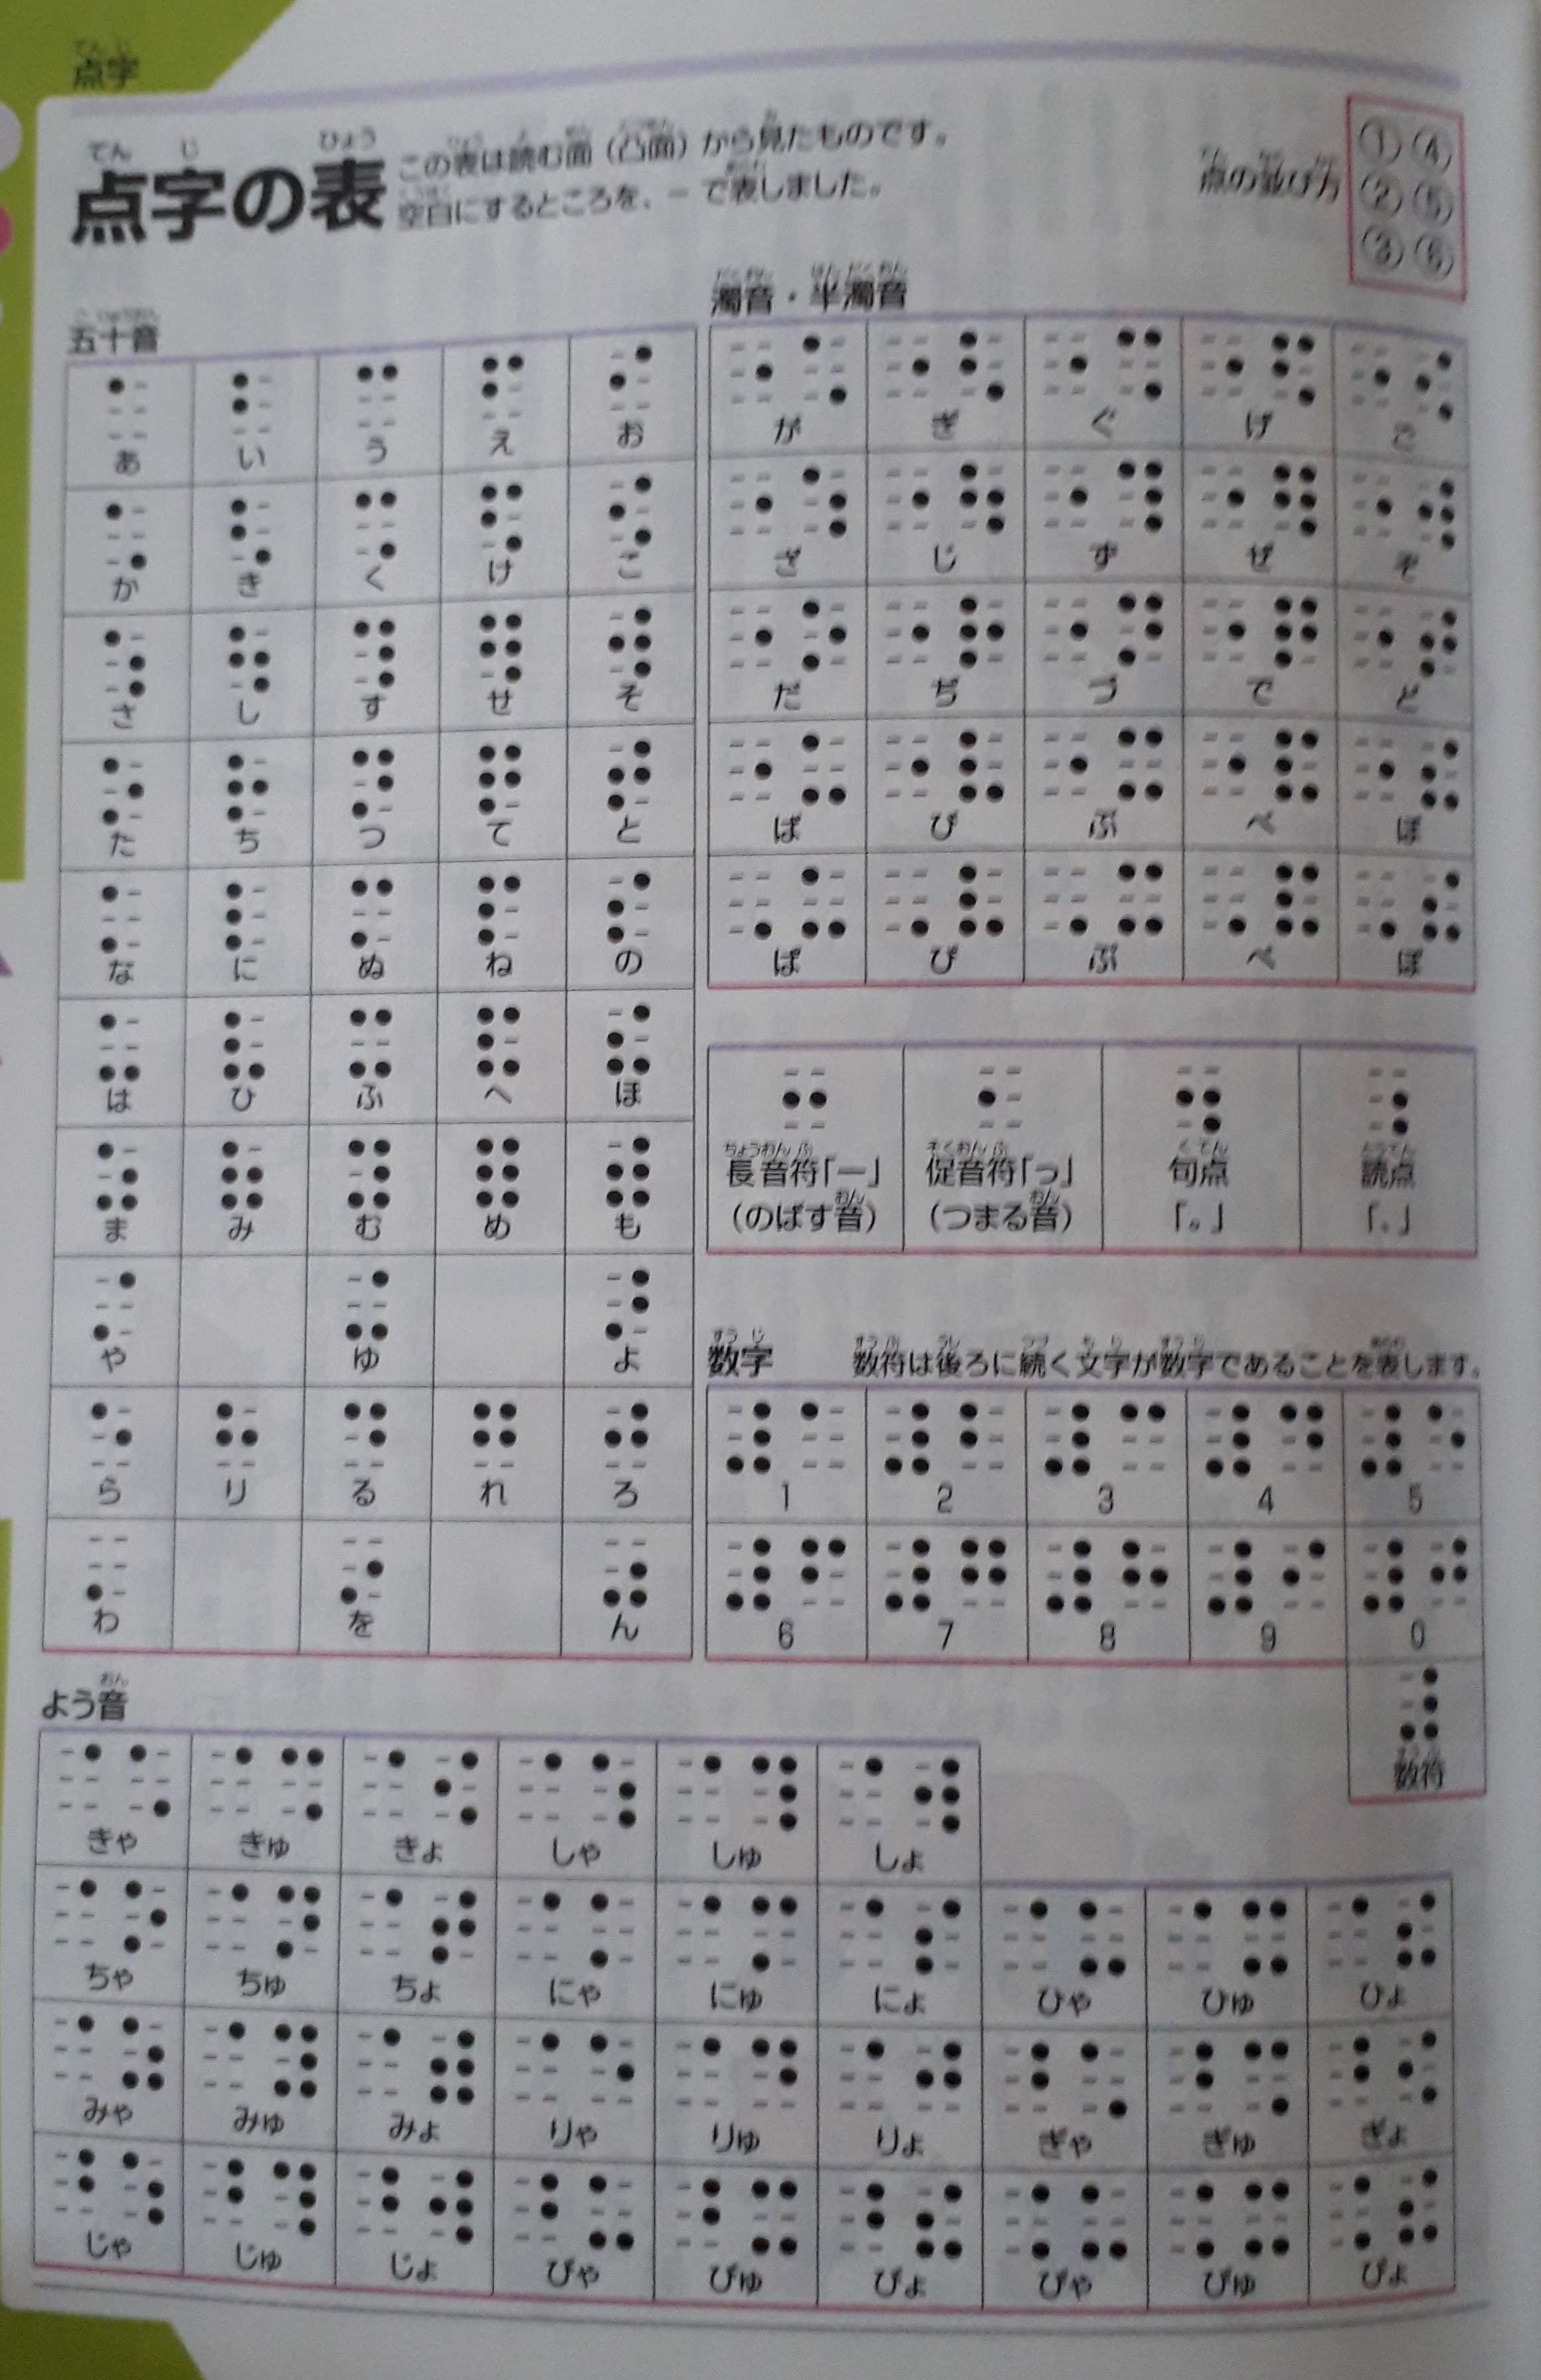 点字
点字の表
この表は読む面（凸面）から見たものです。
空白にするところを、－で表しました。
点の並び方
① ④
② ⑤
③ ⑥
五十音
あ い う え お
か き く け こ
さ し す せ そ
た ち つ て と
な に ぬ ね の
は ひ ふ へ ほ
ま み む め も
や ゆ よ
ら り る れ ろ
わ を ん
濁音・半濁音
が ぎ ぐ げ ご
ざ じ ず ぜ ぞ
だ ぢ づ で ど
ば び ぶ べ ぼ
ぱ ぴ ぷ ぺ ぽ
長音符「ー」 促音符「っ」 句点 読点
（のばす音） （つまる音） 「。」 「、」
数字
数符は後ろに続く文字が数字であることを表します。
1 2 3 4 5
6 7 8 9 0
数符
よう音
きゃ きゅ きょ しゃ しゅ しょ
ちゃ ちゅ ちょ にゃ にゅ にょ ひゃ ひゅ ひょ
みゃ みゅ みょ りゃ りゅ りょ ぎゃ ぎゅ ぎょ
じゃ じゅ じょ びゃ びゅ びょ ぴゃ ぴゅ ぴょ